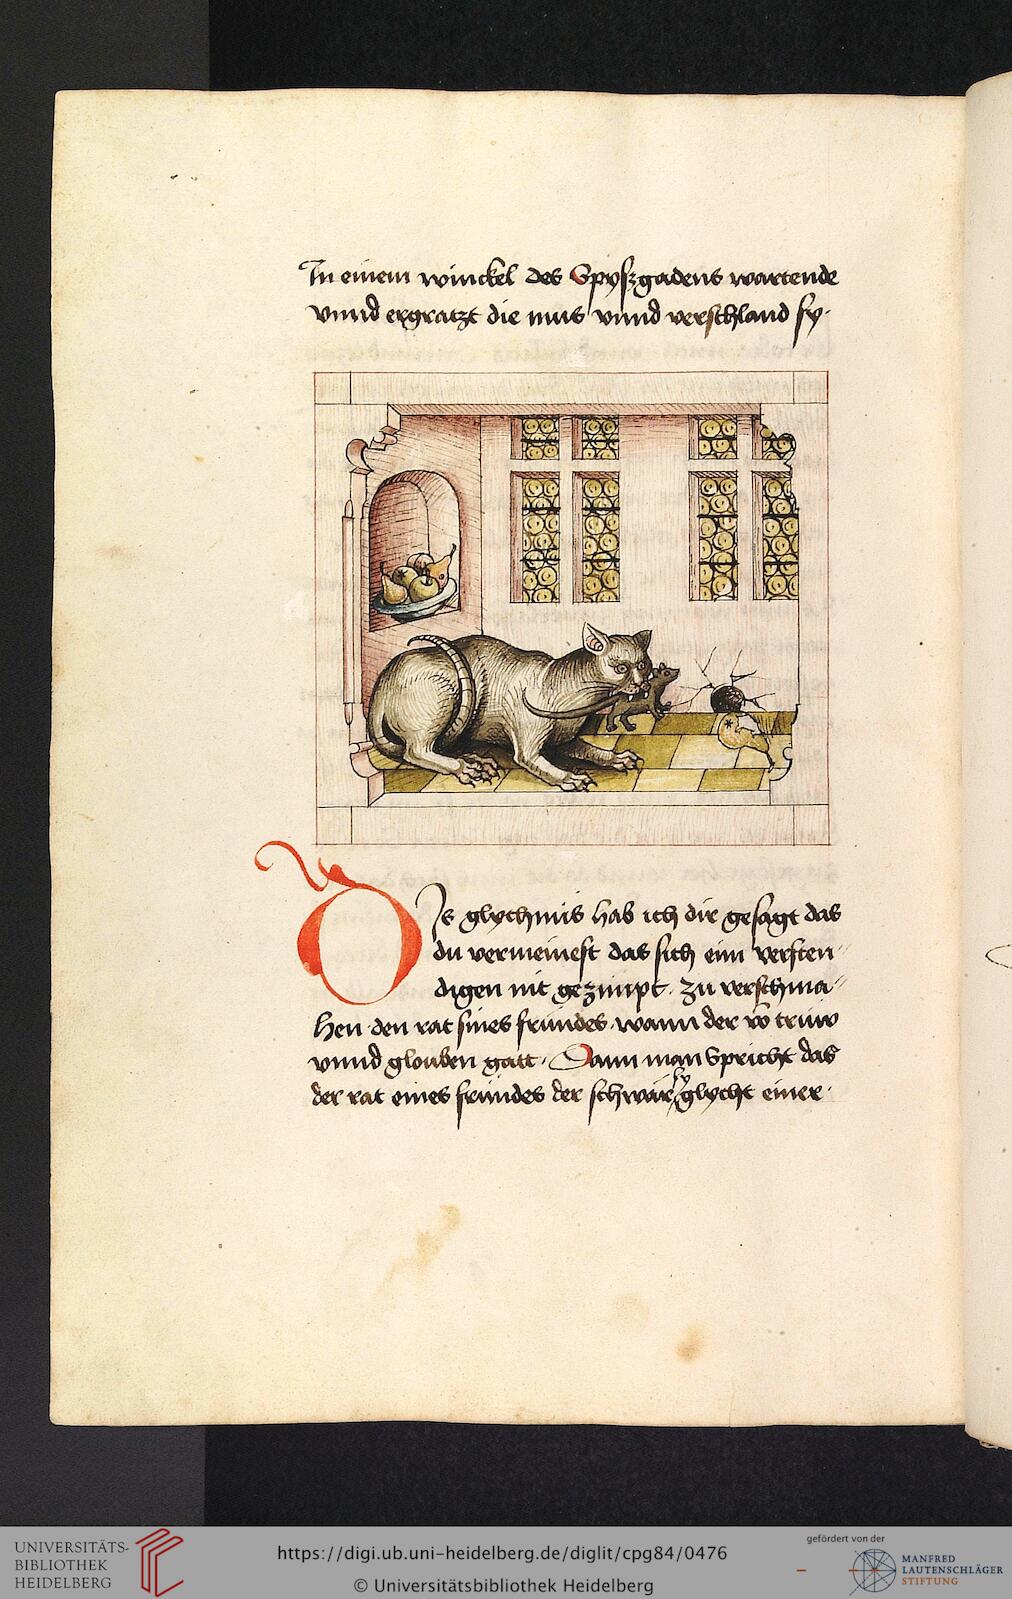 In einem winckel des Spyszgadens wartende
vnnd ergratzt die mus vnnd verschland sy.
Dis glychnis hab ich dir gesagt das
du vermeinest das sich eim versten
digen nit gezimpt. zu verschma
hen den rat sines fründes. wann der vō trüw
vnnd glouben gatt. Dann man Spricht das
der rat eines fründes der schwär sy glycht einer.
UNIVERSITÄTS-
BIBLIOTHEK
HEIDELBERG
https://digi.ub.uni-heidelberg.de/diglit/cpg84/0476
© Universitätsbibliothek Heidelberg
gefördert von der
MANFRED
LAUTENSCHLÄGER
STIFTUNG